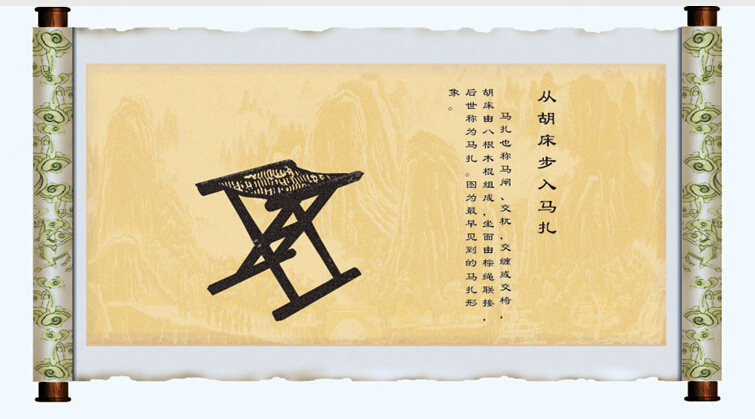 从胡床步入马扎
马扎也称马闸、交杌，交缠或交椅，
胡床由八根木棍组成，坐面由棕绳联接，
后世称为马扎。图为最早见到的马扎形
象。